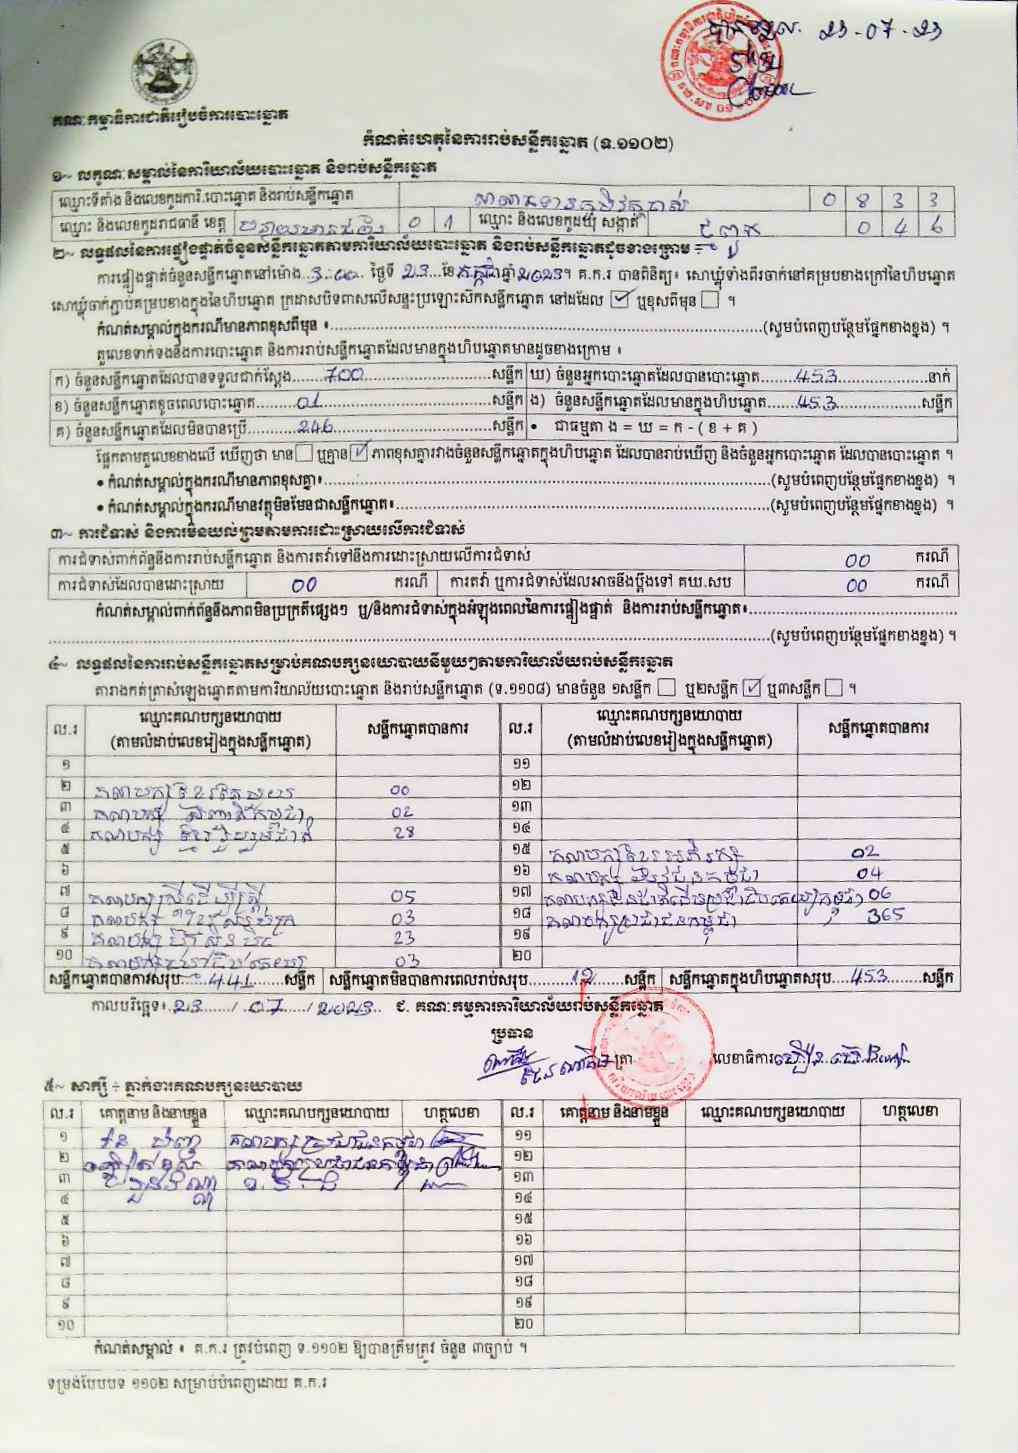 បានទទួល 23-07-23
គណៈកម្មាធិការជាតិរៀបចំការបោះឆ្នោត
កំណត់ហេតុនៃការរាប់សន្លឹកឆ្នោត (ទ.១១០២)
១~ លក្ខណៈសម្គាល់នៃការិយាល័យបោះឆ្នោត និងរាប់សន្លឹកឆ្នោត
ឈ្មោះទីតាំង និងលេខកូដការិ.បោះឆ្នោត និងរាប់សន្លឹកឆ្នោត 0 8 3 3
ឈ្មោះ និងលេខកូដរាជធានី ខេត្ត បន្ទាយមានជ័យ 0 1 ឈ្មោះ និងលេខកូដឃុំ សង្កាត់ 0 4 6
២~ លទ្ធផលនៃការផ្ទៀងផ្ទាត់ចំនួនសន្លឹកឆ្នោតតាមការិយាល័យបោះឆ្នោត និងរាប់សន្លឹកឆ្នោតដូចខាងក្រោម ÷
ការផ្ទៀងផ្ទាត់ចំនួនសន្លឹកឆ្នោតនៅម៉ោង 3:00 ថ្ងៃទី 23 ខែ កក្កដា ឆ្នាំ 2023។ គ.ក.រ បានពិនិត្យ៖ សោឃ្លុំទាំងពីរចាក់នៅគម្របខាងក្រៅនៃហិបឆ្នោត
សោឃ្លុំចាក់ភ្ជាប់គម្របខាងក្នុងនៃហិបឆ្នោត ក្រដាសបិទពាសលើសន្ទះប្រឡោះស៊កសន្លឹកឆ្នោត នៅដដែល ☑ ឬខុសពីមុន ☐ ។
កំណត់សម្គាល់ក្នុងករណីមានភាពខុសពីមុន ៖ (សូមបំពេញបន្ថែមផ្នែកខាងខ្នង) ។
តួលេខទាក់ទងនឹងការបោះឆ្នោត និងការរាប់សន្លឹកឆ្នោតដែលមានក្នុងហិបឆ្នោតមានដូចខាងក្រោម ៖
ក) ចំនួនសន្លឹកឆ្នោតដែលបានទទួលជាក់ស្តែង 700 សន្លឹក ឃ) ចំនួនអ្នកបោះឆ្នោតដែលបានបោះឆ្នោត 453 នាក់
ខ) ចំនួនសន្លឹកឆ្នោតខូចពេលបោះឆ្នោត 01 សន្លឹក ង) ចំនួនសន្លឹកឆ្នោតដែលមានក្នុងហិបឆ្នោត 453 សន្លឹក
គ) ចំនួនសន្លឹកឆ្នោតដែលមិនបានប្រើ 246 សន្លឹក • ជាធម្មតា ង = ឃ = ក - ( ខ + គ )
ផ្អែកតាមតួលេខខាងលើ ឃើញថា មាន ☐ ឬគ្មាន ☑ ភាពខុសគ្នារវាងចំនួនសន្លឹកឆ្នោតក្នុងហិបឆ្នោត ដែលបានរាប់ឃើញ និងចំនួនអ្នកបោះឆ្នោត ដែលបានបោះឆ្នោត ។
• កំណត់សម្គាល់ក្នុងករណីមានភាពខុសគ្នា៖ (សូមបំពេញបន្ថែមផ្នែកខាងខ្នង) ។
• កំណត់សម្គាល់ក្នុងករណីមានវត្ថុមិនមែនជាសន្លឹកឆ្នោត៖ (សូមបំពេញបន្ថែមផ្នែកខាងខ្នង) ។
៣~ ការជំទាស់ និងការមិនយល់ព្រមតាមការដោះស្រាយលើការជំទាស់
ការជំទាស់ពាក់ព័ន្ធនឹងការរាប់សន្លឹកឆ្នោត និងការតវ៉ាទៅនឹងការដោះស្រាយលើការជំទាស់ 00 ករណី
ការជំទាស់ដែលបានដោះស្រាយ 00 ករណី ការតវ៉ា ឬការជំទាស់ដែលអាចនឹងប្តឹងទៅ គឃ.សប 00 ករណី
កំណត់សម្គាល់ពាក់ព័ន្ធនឹងភាពមិនប្រក្រតីផ្សេងៗ ឬ/និងការជំទាស់ក្នុងអំឡុងពេលនៃការផ្ទៀងផ្ទាត់ និងការរាប់សន្លឹកឆ្នោត៖
(សូមបំពេញបន្ថែមផ្នែកខាងខ្នង) ។
៤~ លទ្ធផលនៃការរាប់សន្លឹកឆ្នោតសម្រាប់គណបក្សនយោបាយនីមួយៗតាមការិយាល័យរាប់សន្លឹកឆ្នោត
តារាងកត់ត្រាសំឡេងឆ្នោតតាមការិយាល័យបោះឆ្នោត និងរាប់សន្លឹកឆ្នោត (ទ.១១០៨) មានចំនួន ១សន្លឹក ☐ ឬ២សន្លឹក ☑ ឬ៣សន្លឹក ☐ ។
ល.រ ឈ្មោះគណបក្សនយោបាយ (តាមលំដាប់លេខរៀងក្នុងសន្លឹកឆ្នោត) សន្លឹកឆ្នោតបានការ ល.រ ឈ្មោះគណបក្សនយោបាយ (តាមលំដាប់លេខរៀងក្នុងសន្លឹកឆ្នោត) សន្លឹកឆ្នោតបានការ
១ ១១
២ គណបក្ស 00 ១២
៣ គណបក្ស 02 ១៣
៤ គណបក្ស 28 ១៤
៥ ១៥ គណបក្សខ្មែរអភិរក្ស 02
៦ ១៦ គណបក្ស 04
៧ គណបក្សស្ត្រីដើម្បីស្ត្រី 05 ១៧ 06
៨ គណបក្ស 03 ១៨ គណបក្សប្រជាជនកម្ពុជា 365
៩ គណបក្ស 23 ១៩
១០ គណបក្ស 03 ២០
សន្លឹកឆ្នោតបានការសរុប 441 សន្លឹក សន្លឹកឆ្នោតមិនបានការពេលរាប់សរុប 12 សន្លឹក សន្លឹកឆ្នោតក្នុងហិបឆ្នោតសរុប 453 សន្លឹក
កាលបរិច្ឆេទ៖ 23 / 07 / 2023 ជ. គណៈកម្មការការិយាល័យរាប់សន្លឹកឆ្នោត
ប្រធាន
ត្រា លេខាធិការ
៥~ សាក្សី ÷ ភ្នាក់ងារគណបក្សនយោបាយ
ល.រ គោត្តនាម និងនាមខ្លួន ឈ្មោះគណបក្សនយោបាយ ហត្ថលេខា ល.រ គោត្តនាម និងនាមខ្លួន ឈ្មោះគណបក្សនយោបាយ ហត្ថលេខា
១ គណបក្សប្រជាជនកម្ពុជា ១១
២ គណបក្សប្រជាជនកម្ពុជា ១២
៣ ១៣
៤ ១៤
៥ ១៥
៦ ១៦
៧ ១៧
៨ ១៨
៩ ១៩
១០ ២០
កំណត់សម្គាល់ ៖ គ.ក.រ ត្រូវបំពេញ ទ.១១០២ ឱ្យបានត្រឹមត្រូវ ចំនួន ៣ច្បាប់ ។
ទម្រង់បែបបទ ១១០២ សម្រាប់បំពេញដោយ គ.ក.រ